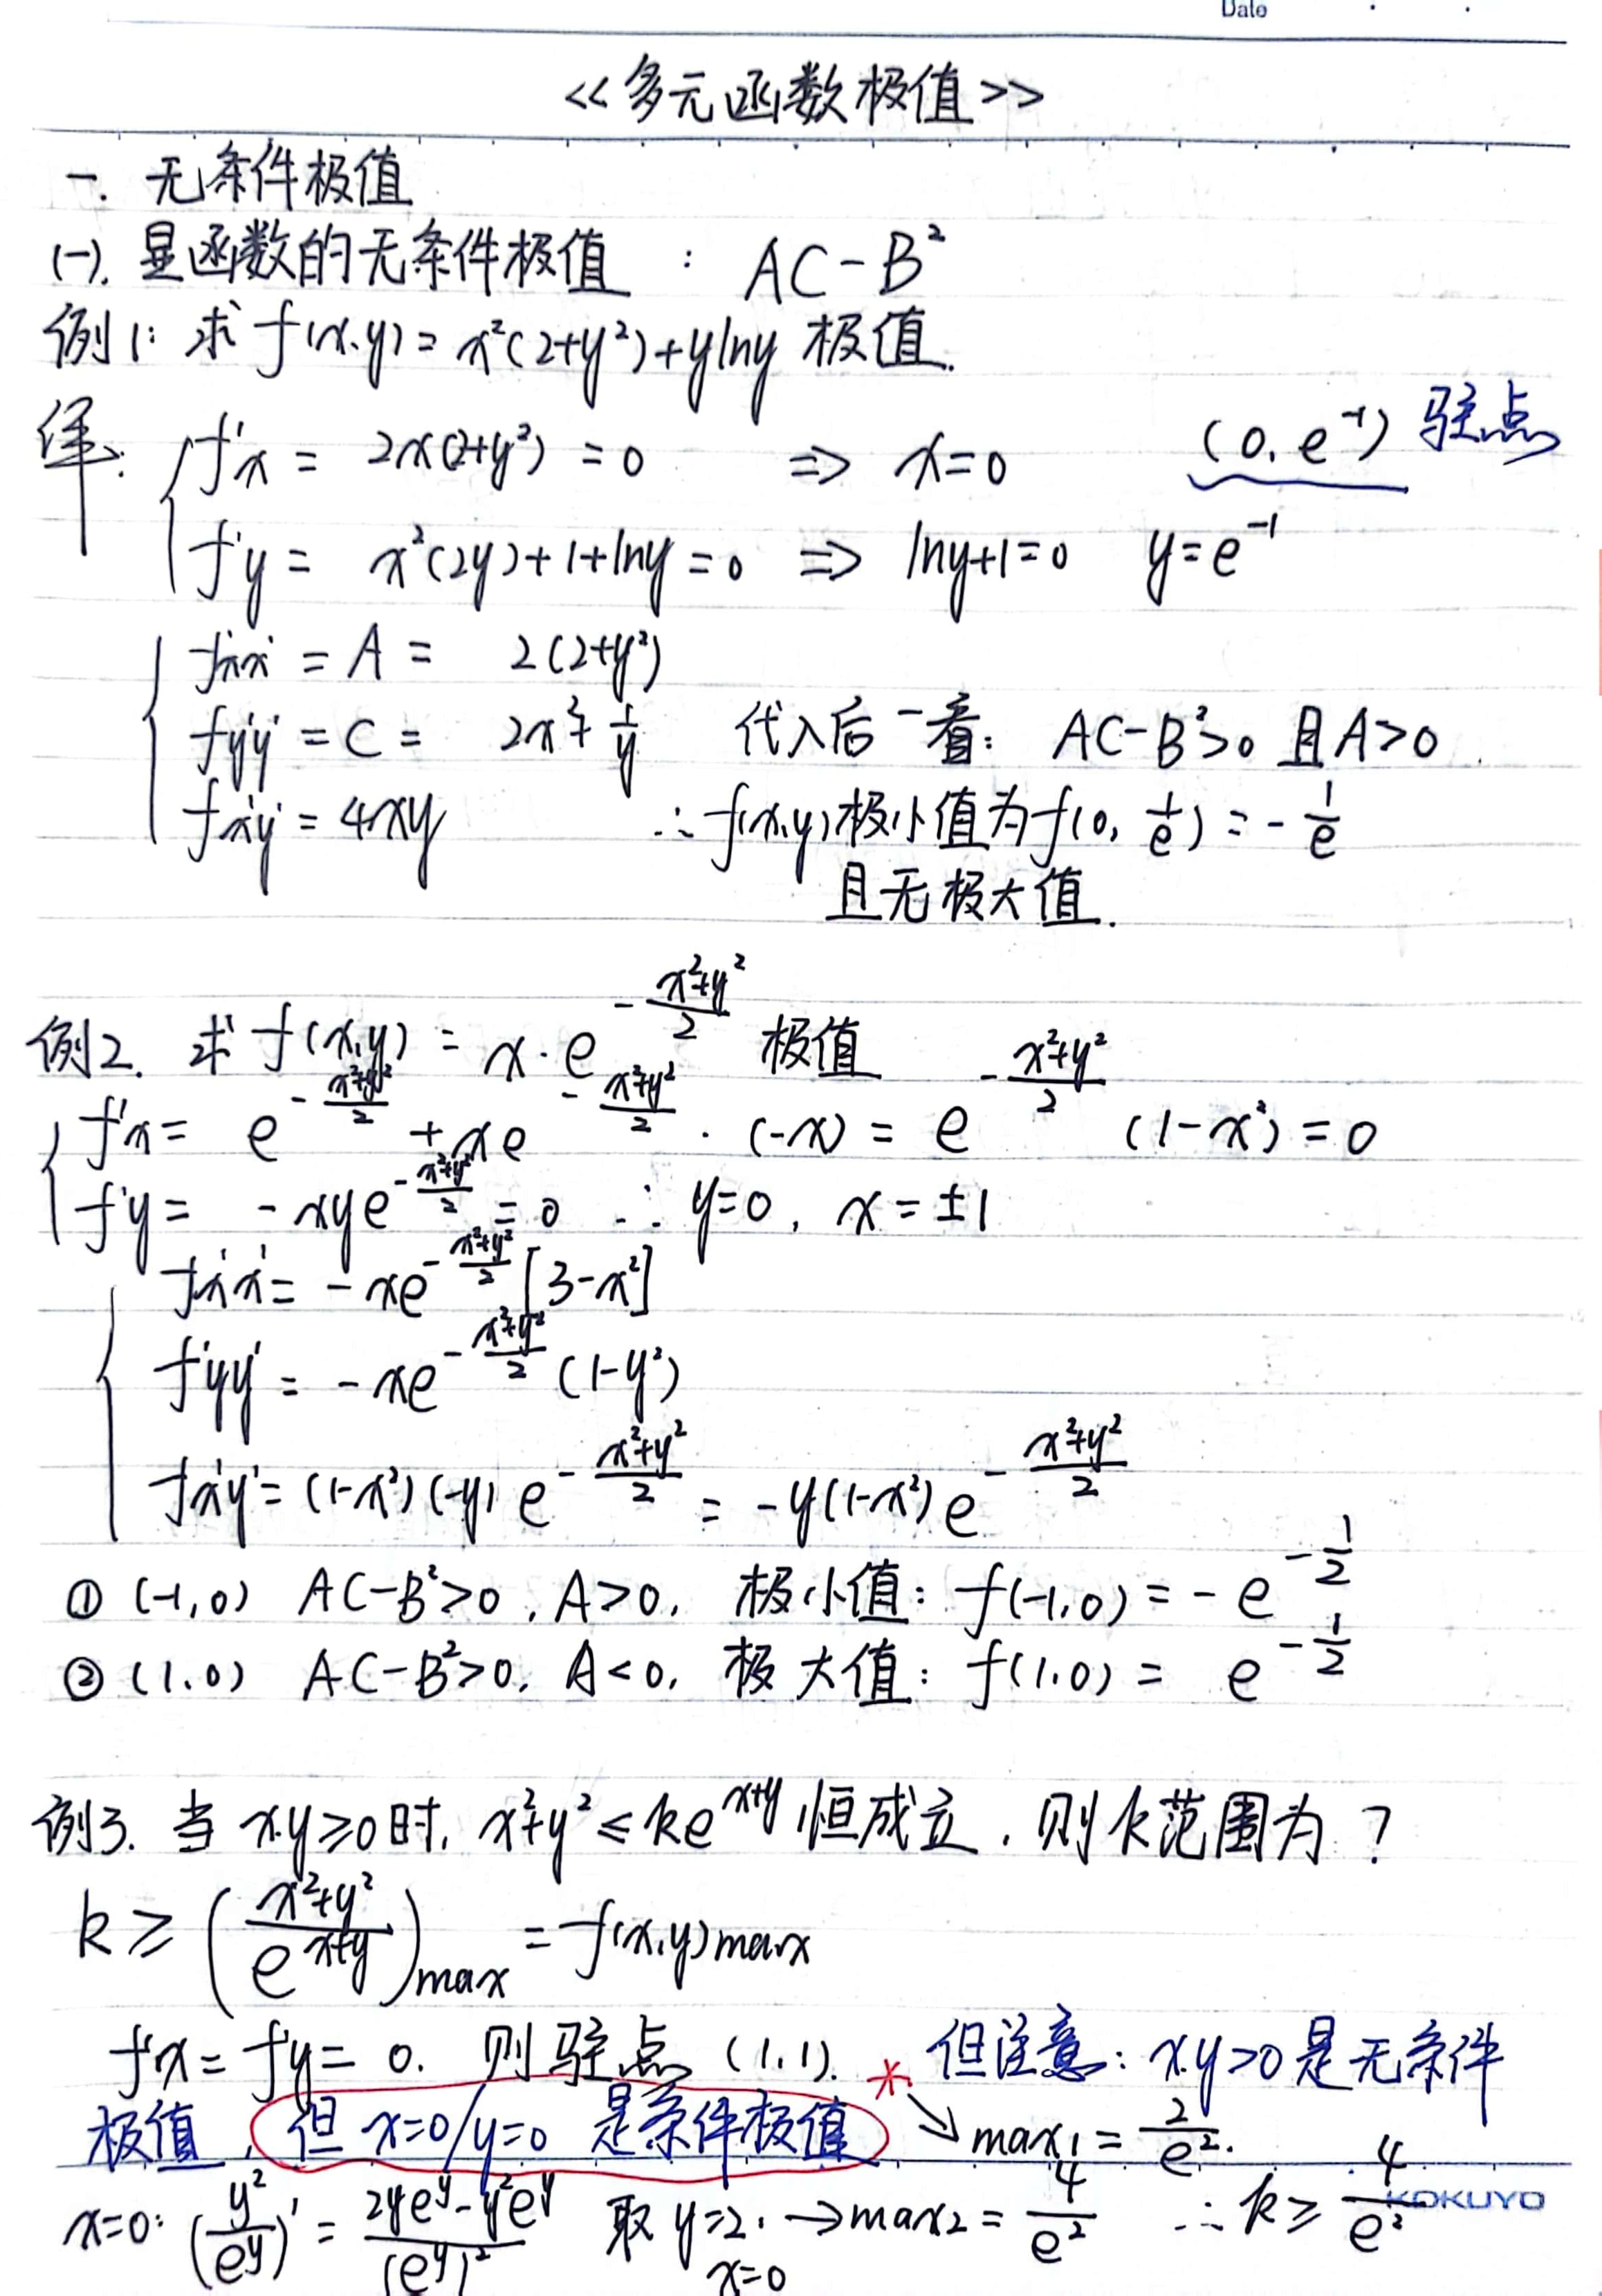 Date
<<多元函数极值>>
一. 无条件极值
(一). 显函数的无条件极值 : AC-B²
例1: 求 f(x,y) = x²(2+y²)+ylny 极值.
解: f'x = 2x(2+y²) = 0 ⇒ x=0 (0, e⁻¹) 驻点
f'y = x²(2y)+1+lny = 0 ⇒ lny+1=0 y=e⁻¹
f''xx = A = 2(2+y²)
f''yy = C = 2x²+1/y 代入后一看: AC-B²>0 且A>0.
f''xy = 4xy ∴ f(x,y)极小值为f(0, 1/e) = -1/e
且无极大值.
例2. 求 f(x,y) = x·e^(-(x²+y²)/2) 极值
f'x = e^(-(x²+y²)/2) + xe^(-(x²+y²)/2)·(-x) = e^(-(x²+y²)/2) (1-x²) = 0
f'y = -xye^(-(x²+y²)/2) = 0 ∴ y=0, x=±1
f''xx = -xe^(-(x²+y²)/2) [3-x²]
f''yy = -xe^(-(x²+y²)/2) (1-y²)
f''xy = (1-x²)(-y) e^(-(x²+y²)/2) = -y(1-x²) e^(-(x²+y²)/2)
① (-1,0) AC-B²>0, A>0, 极小值: f(-1,0) = -e^(-1/2)
② (1,0) AC-B²>0, A<0, 极大值: f(1,0) = e^(-1/2)
例3. 当 x,y≥0时, x²+y² ≤ ke^(x+y) 恒成立, 则k范围为?
k ≥ ((x²+y²)/e^(x+y))max = f(x,y)max
f'x = f'y = 0. 则驻点 (1,1). * 但注意: x,y>0是无条件
极值, 但 x=0/y=0 是条件极值 ↘ max₁ = 2/e².
x=0: (y²/e^y)' = (2ye^y-y²e^y)/(e^y)² 取 y=2. → max₂ = 4/e² ∴ k ≥ 4/e²
x=0
KOKUYO